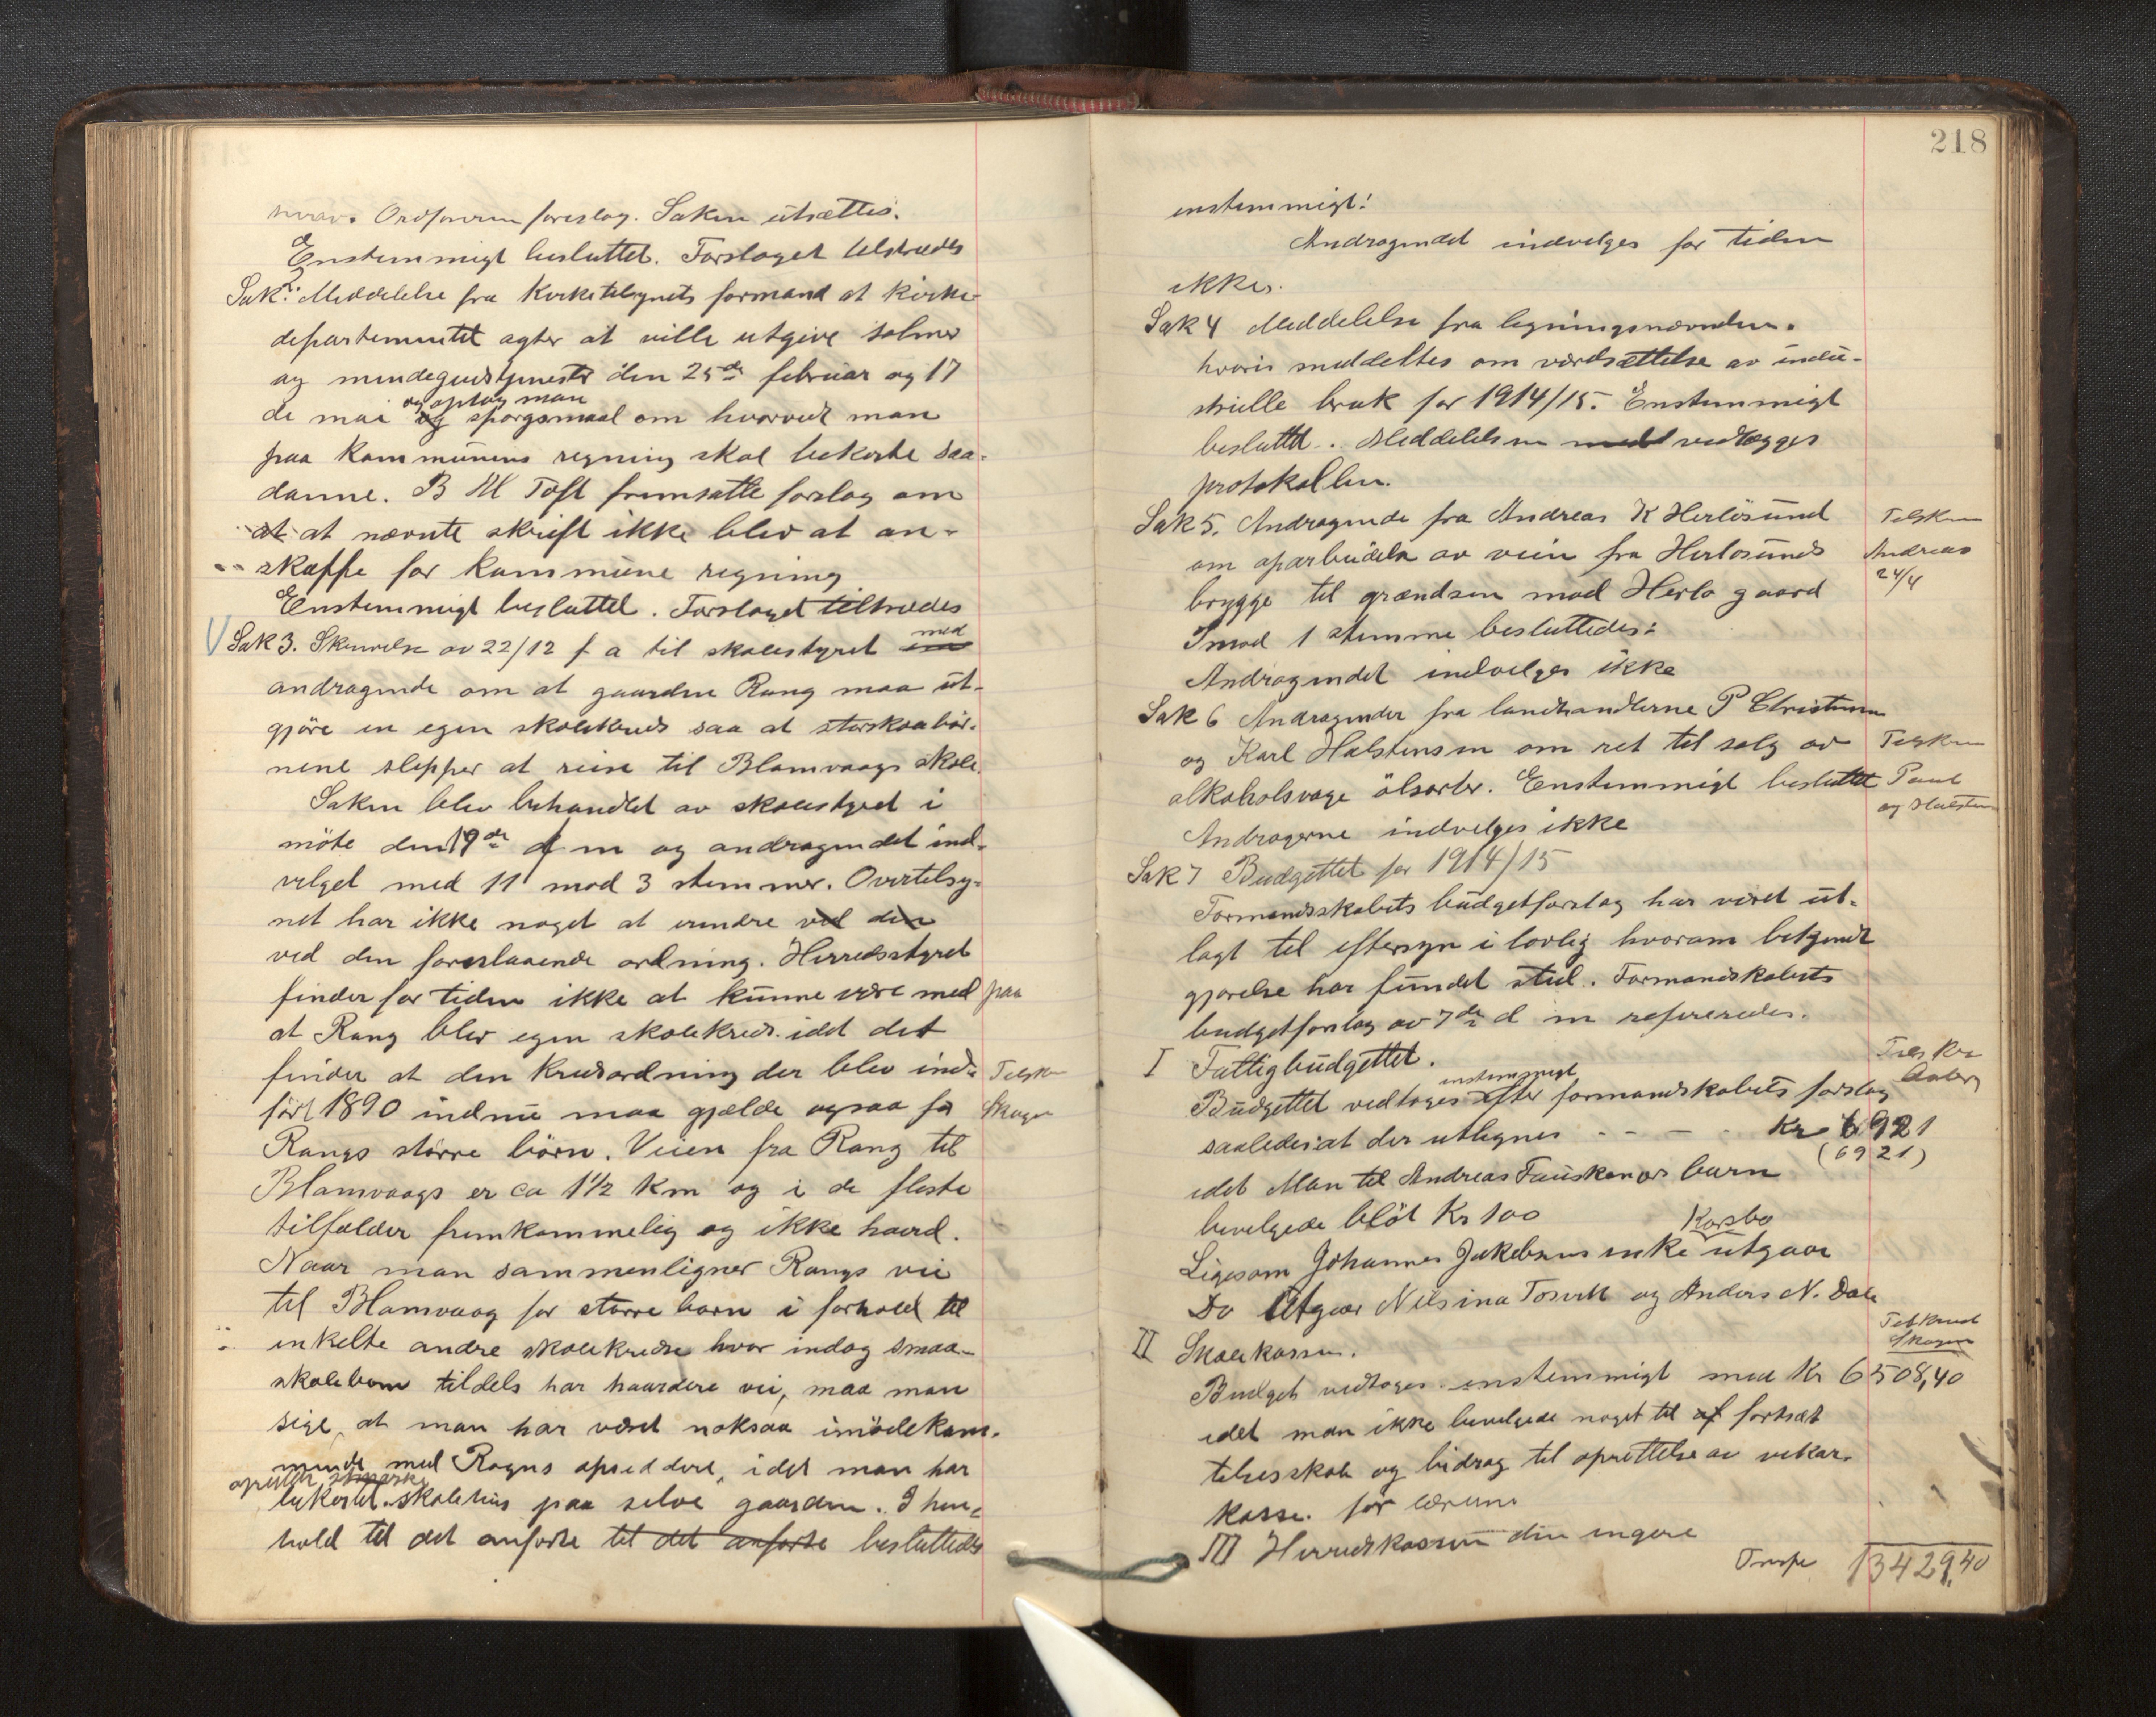 svar. Ordføreren foreslog. Saken utsættes.
Enstemmigt besluttet. Forslaget tiltrædes
Sak 2: Meddelelse fra Kirketilsynets formand at kirke-
departementet agter at ville utgive salmer
og mindegudstjenester den 25de februar og 17
og optog man
de mai og spørgsmaal om hvorvidt man
paa Kommunens regning skal bekoste saa-
danne. B M Toft fremsatte forslag om
at at nævnte skrift ikke blev at an-
skaffe for kommune regning
Enstemmigt besluttet. Forslaget tiltrædes
Sak 3. Skrivelse av 22/12 f a til skolestyret med
andragende om at gaarden Rong maa ut-
gjöre en egen skolekreds saa at storskolebör-
nene slepper at reise til Blomvaags skole.
Saken blev behandlet av skolestyret i
möte den 19de d m og andragendet ind-
vilget med 11 mod 3 stemmer. Overtilsy-
net har ikke noget at erindre ved den
ved den foreslaaende ordning. Herredsstyret
finder for tiden ikke at kunne være med paa
at Rong blev egen skolekreds. idet det
finder at den kredsordning der blev ind-
Telskr
fört 1890 indnu maa gjælde ogsaa for
Skogen
Rongs större börn. Veien fra Rong til
Blomvaags er ca 1½ Km og i de fleste
tilfælder fremkommelig og ikke haard.
Naar man sammenligner Rongs vei
til Blomvaag for större barn i forhold til
enkelte andre skolekredse hvor endog smaa-
skolebarn tildels har haardere vei, maa man
sige, at man har været noksaa imödekom-
mende med Rongs opsiddere, idet man har
opsittere
bekostet skolehus paa selve gaarden. I hen-
hold til det anförte til det anförte besluttedes
218
enstemmigt:
Andragendet indvilges for tiden
ikke.
Sak 4 Meddelelse fra ligningsnævnden.
hvoris meddeltes om værdsættelse av indu-
strielle bruk for 1914/15. Enstemmigt
besluttet. Meddelelsen med vedlægges
protokollen.
Sak 5. Andragende fra Andreas K Herlösund
Telskr
om oparbeidelse av veien fra Herlösunds
Andreas
24/4
brygge til grændsen mod Herlo gaard
Imod 1 stemme besluttedes:
Andragendet indvilges ikke
Sak 6 Andragender fra landhandlerne P Christensen
og Karl Halstensen om ret til salg av
Telskr
alkoholsvage ölsorter. Enstemmigt besluttet
Paul
og Halsten
Andragerne indvilges ikke
Sak 7 Budgettet for 1914/15
Formandsskabets budgetforslag har været ut-
lagt til eftersyn i lovlig hvorom bekjendt
gjörelse har fundet sted. Formandskabets
budgetforslag av 7de d m refereredes.
I Fattigbudgettet.
Telskr
enstemmigt
Budgettet vedtages efter formandskabets forslag
saaledes at der utlignes - - - - Kr 6921
(6921)
idet Man til Andreas Fauskangers barn
bevilgede blöt Kr 100
Korsbø
Ligesom Johannes Jakobsens enke utgaar
Do Utgaar Nilsina Toserk og Anders N. Dale
Telskrevet
Skogen
II Skolekassen.
Budget vedtages enstemmigt med Kr 6508,40
idet man ikke bevilgede noget til af fortsæt
telsesskole og bidrag til oprettelse av vikar-
kasse. for lærerne
III Herredskassen den engere
Transp 13429,40